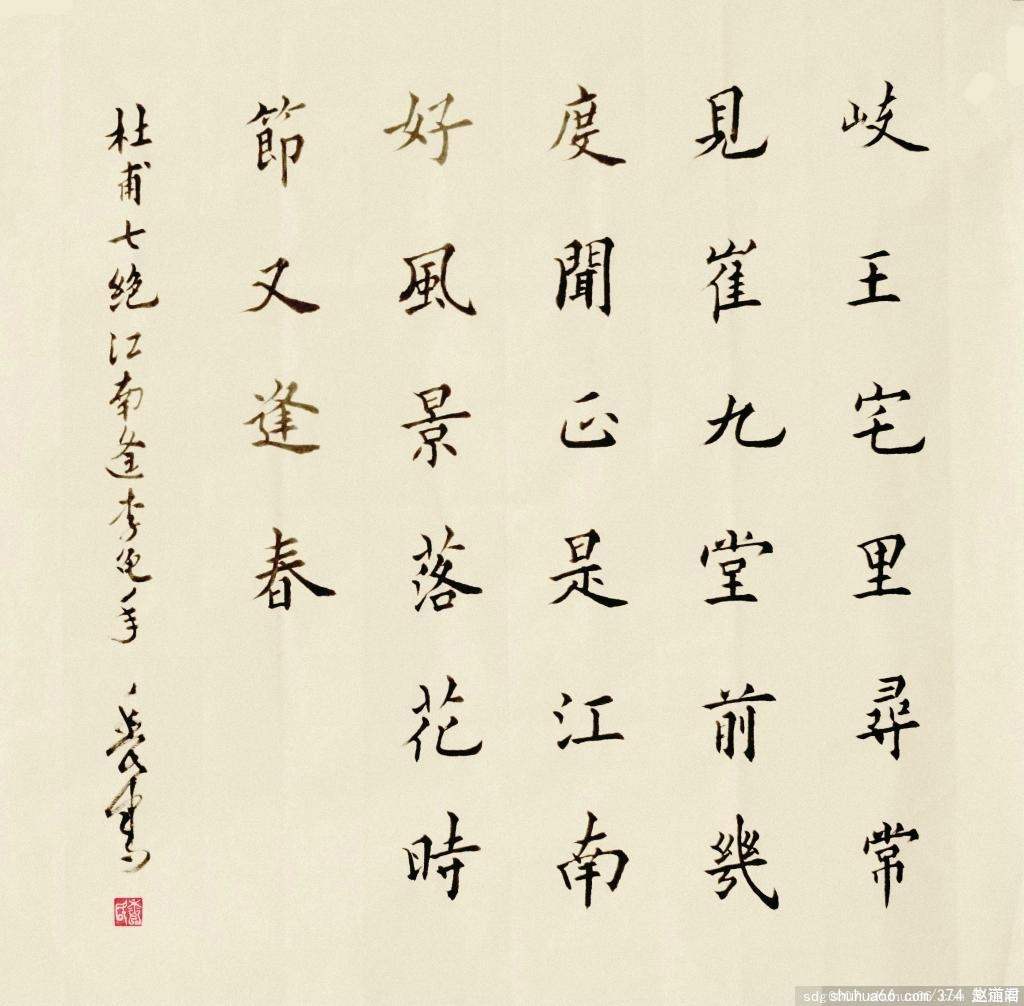 岐王宅里尋常
見崔九堂前幾
度聞正是江南
好風景落花時
節又逢春
杜甫七絕江南逢李龜年
shuhua66.com/374